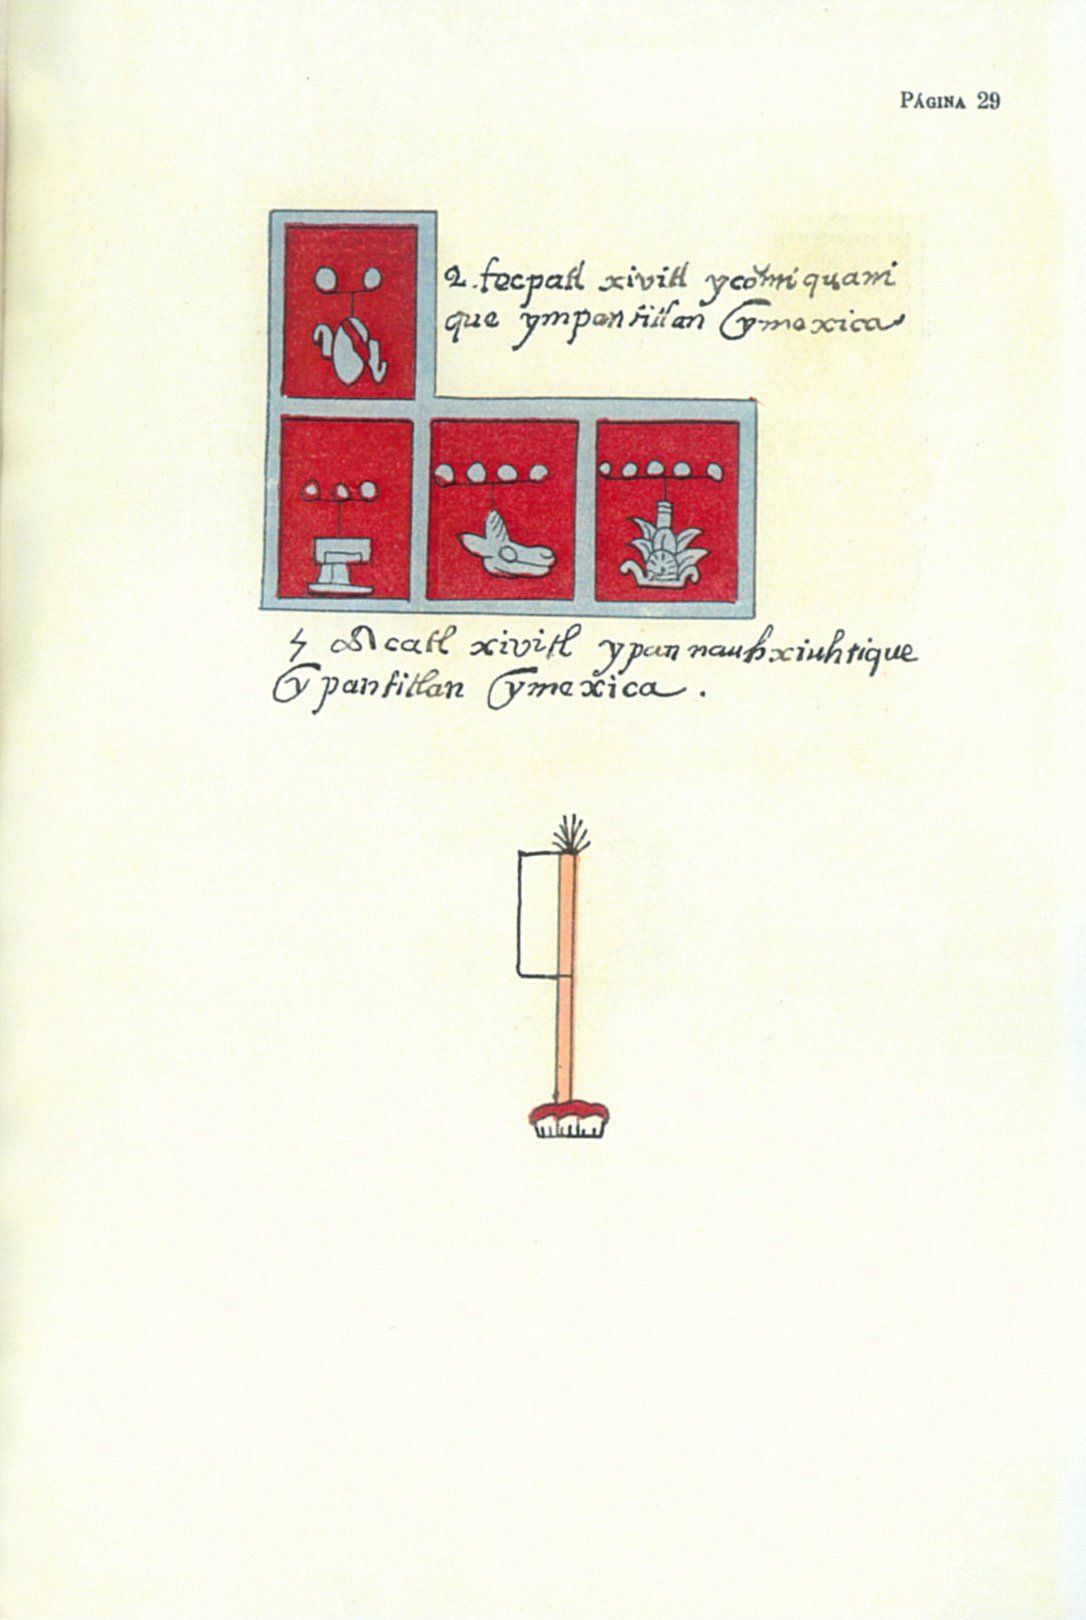 PÁGINA 29
2. tecpatl xivitl ycōmiquani
que ympantitlan ymexica
5 Acatl xivitl ypan nauhxiuhtique
ypantitlan ymexica.